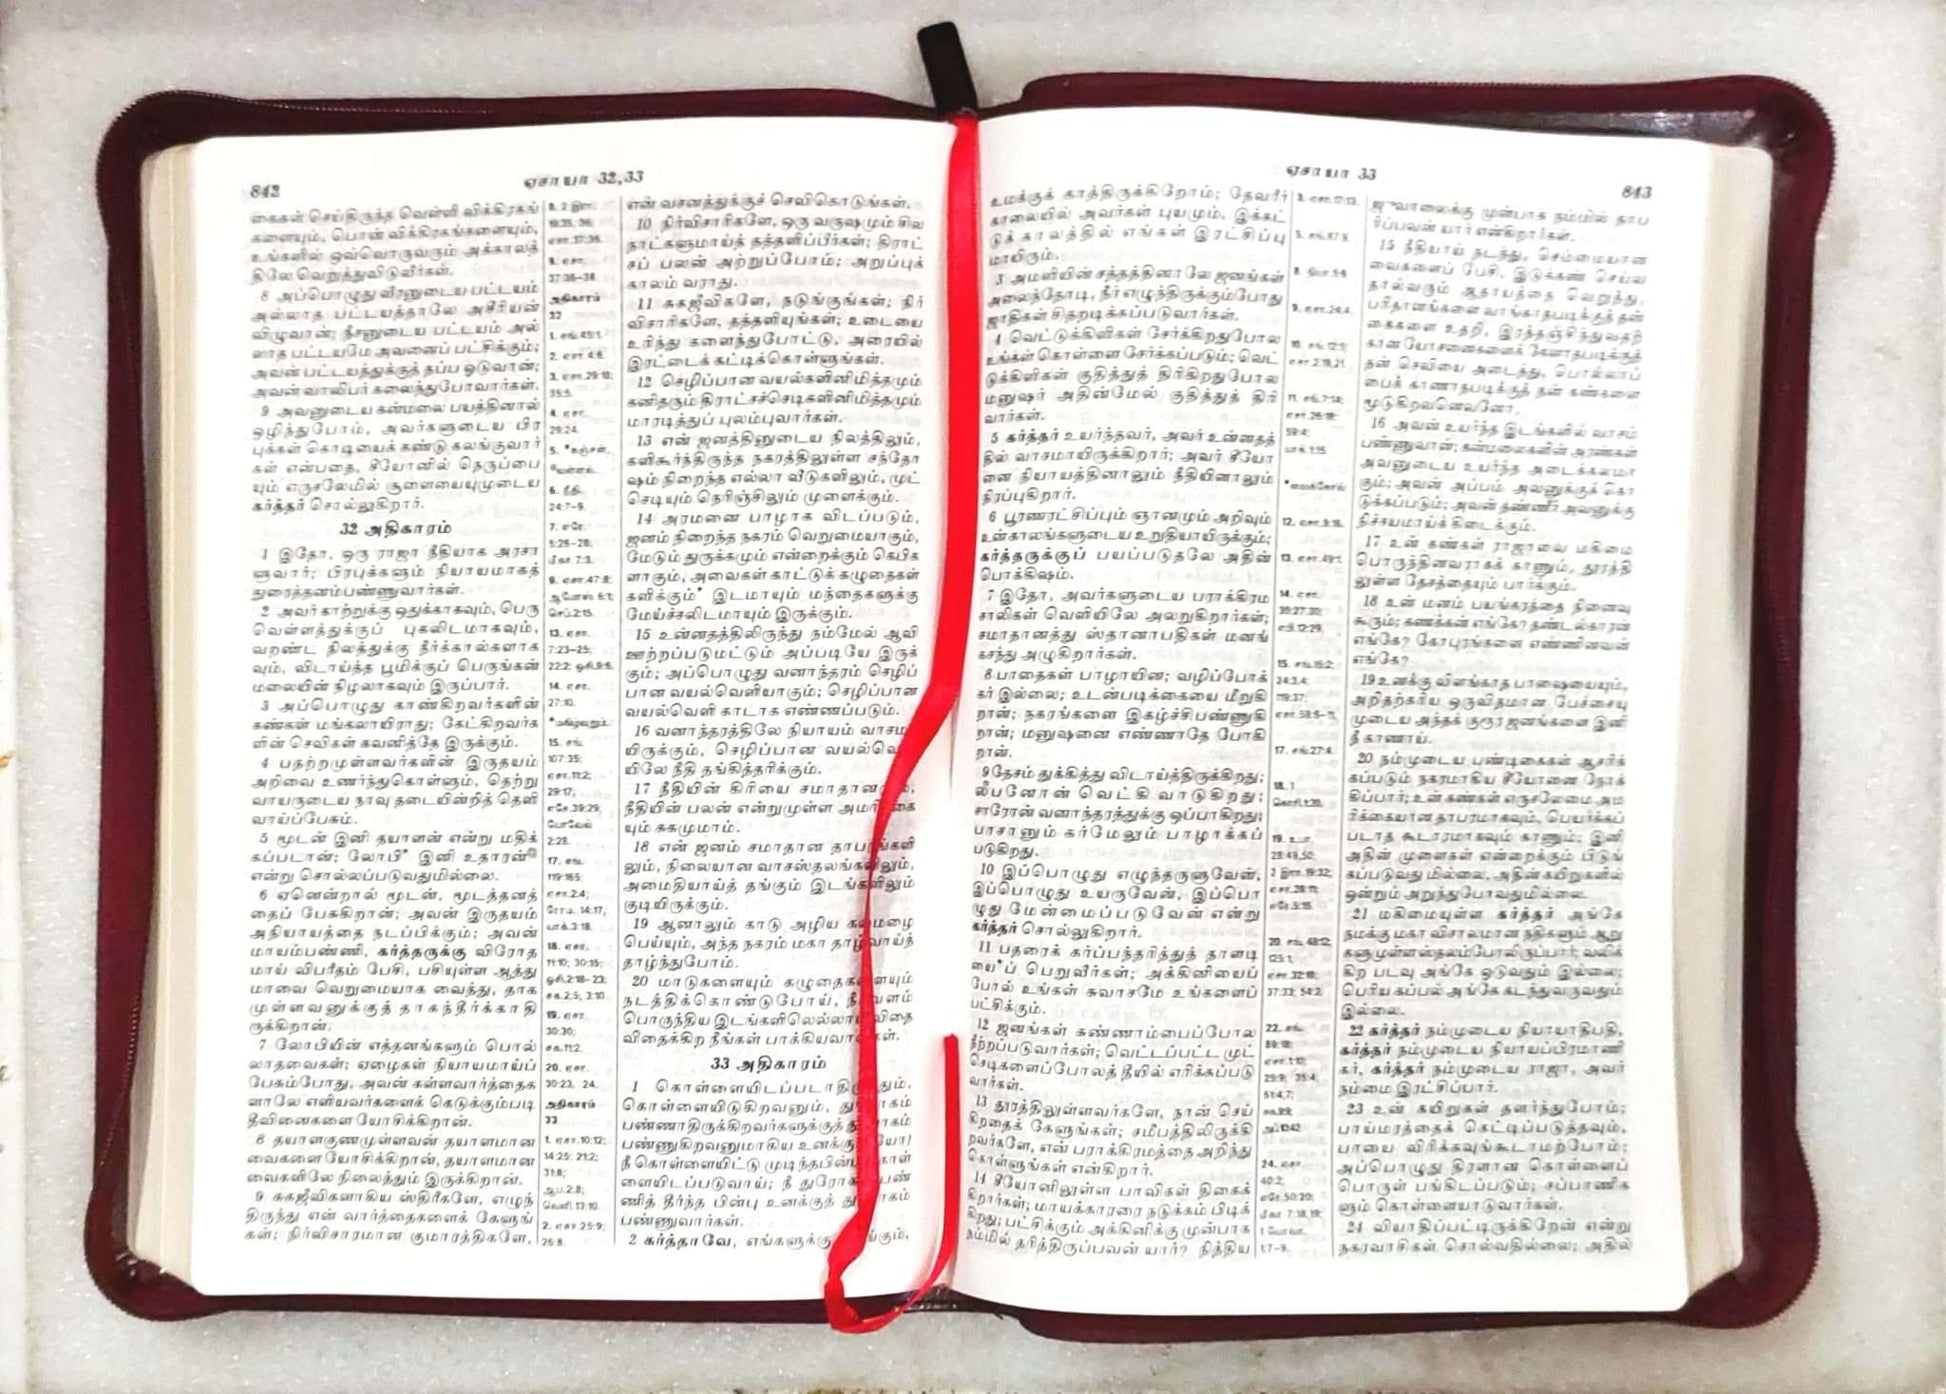 842
ஏசாயா 32,33
கைகள் செய்திருந்த வெள்ளி விக்கிரகங்
களையும், பொன் விக்கிரகங்களையும்,
உங்களில் ஒவ்வொருவரும் அக்காலத்
திலே வெறுத்துவிடுவீர்கள்.
8 அப்பொழுது வீரனுடைய பட்டயம்
அல்லாத பட்டயத்தாலே அசீரியன்
விழுவான்; நீசனுடைய பட்டயம் அல்
லாத பட்டயமே அவனைப் பட்சிக்கும்;
அவன் பட்டயத்துக்குத் தப்ப ஓடுவான்;
அவன் வாலிபர் கலைந்துபோவார்கள்.
9 அவனுடைய கன்மலை பயத்தினால்
ஒழிந்துபோம், அவர்களுடைய பிர
புக்கள் கொடியைக் கண்டு கலங்குவார்
கள் என்பதை, சீயோனில் நெருப்பை
யும் எருசலேமில் சூளையையுமுடைய
கர்த்தர் சொல்லுகிறார்.
32 அதிகாரம்
1 இதோ, ஒரு ராஜா நீதியாக அரசா
ளுவார்; பிரபுக்களும் நியாயமாகத்
துரைத்தனம்பண்ணுவார்கள்.
2 அவர் காற்றுக்கு ஒதுக்காகவும், பெரு
வெள்ளத்துக்குப் புகலிடமாகவும்,
வறண்ட நிலத்துக்கு நீர்க்கால்களாக
வும், விடாய்த்த பூமிக்குப் பெருங்கன்
மலையின் நிழலாகவும் இருப்பார்.
3 அப்பொழுது காண்கிறவர்களின்
கண்கள் மங்கலாயிராது; கேட்கிறவர்க
ளின் செவிகள் கவனித்தே இருக்கும்.
4 பதற்றமுள்ளவர்களின் இருதயம்
அறிவை உணர்ந்துகொள்ளும், தெற்று
வாயருடைய நாவு தடையின்றித் தெளி
வாய்ப்பேசும்.
5 மூடன் இனி தயாளன் என்று மதிக்
கப்படான்; லோபி* இனி உதாரன்@
என்று சொல்லப்படுவதுமில்லை.
6 ஏனென்றால் மூடன், மூடத்தனத்
தைப் பேசுகிறான்; அவன் இருதயம்
அநியாயத்தை நடப்பிக்கும்; அவன்
மாயம்பண்ணி, கர்த்தருக்கு விரோத
மாய் விபரீதம் பேசி, பசியுள்ள ஆத்து
மாவை வெறுமையாக வைத்து, தாக
முள்ளவனுக்குத் தாகந்தீர்க்காதி
ருக்கிறான்.
7 லோபியின் எத்தனங்களும் பொல்
லாதவைகள்; ஏழைகள் நியாயமாய்ப்
பேசும்போது, அவன் கள்ளவார்த்தைக
ளாலே எளியவர்களைக் கெடுக்கும்படி
தீவினைகளை யோசிக்கிறான்.
8 தயாளகுணமுள்ளவன் தயாளமான
வைகளை யோசிக்கிறான், தயாளமான
வைகளிலே நிலைத்தும் இருக்கிறான்.
9 சுகஜீவிகளாகிய ஸ்திரீகளே, எழுந்
திருந்து என் வார்த்தைகளைக் கேளுங்
கள்; நிர்விசாரமான குமாரத்திகளே,
8. 2 இரா.
19:35, 36;
ஏசா.37:36.
9. ஏசா.
37:36-38.
அதிகாரம்
32
1. சங்.45:1.
2. ஏசா.4:6.
3. ஏசா.29:18;
35:5.
4. ஏசா.
29:24.
6. நீதி.
24:7-9.
7. எரே.
5:26-28;
மீகா 7:3.
9. ஏசா.47:8;
ஆமோஸ் 6:1;
செப்.2:15.
13. ஏசா.
7:23-25;
22:2; ஓசி.9:6.
14. ஏசா.
27:10.
15. சங்.
107:35;
ஏசா.11:2;
29:17;
எசே.39:29;
யோவேல்
2:28.
17. சங்.
119:165;
ஏசா.2:4;
ரோம. 14:17;
யாக்.3:18.
18. ஏசா.
11:10; 30:15;
ஓசி.2:18-23;
சக.2:5; 3:10.
19. ஏசா.
30:30;
சக.11:2.
20. ஏசா.
30:23, 24.
அதிகாரம்
33
1. ஏசா.10:12;
14:25; 21:2;
31:8;
ஆப.2:8;
வெளி.13:10.
2. ஏசா.25:9;
26:8.
என் வசனத்துக்குச் செவிகொடுங்கள்.
10 நிர்விசாரிகளே, ஒரு வருஷமும் சில
நாட்களுமாய்த் தத்தளிப்பீர்கள்; திராட்
சப் பலன் அற்றுப்போம்; அறுப்புக்
காலம் வராது.
11 சுகஜீவிகளே, நடுங்குங்கள்; நிர்
விசாரிகளே, தத்தளியுங்கள்; உடையை
உரிந்து களைந்துபோட்டு, அரையில்
இரட்டைக் கட்டிக்கொள்ளுங்கள்.
12 செழிப்பான வயல்களினிமித்தமும்
கனிதரும் திராட்சச்செடிகளினிமித்தமும்
மாரடித்துப் புலம்புவார்கள்.
13 என் ஜனத்தினுடைய நிலத்திலும்,
களிகூர்ந்திருந்த நகரத்திலுள்ள சந்தோ
ஷம் நிறைந்த எல்லா வீடுகளிலும், முட்
செடியும் நெரிஞ்சிலும் முளைக்கும்.
14 அரமனை பாழாக விடப்படும்,
ஜனம் நிறைந்த நகரம் வெறுமையாகும்,
மேடும் துருக்கமும் என்றைக்கும் கெபிக
ளாகும், அவைகள் காட்டுக் கழுதைகள்
களிக்கும்* இடமாயும் மந்தைகளுக்கு
மேய்ச்சலிடமாயும் இருக்கும்.
15 உன்னதத்திலிருந்து நம்மேல் ஆவி
ஊற்றப்படுமட்டும் அப்படியே இருக்
கும்; அப்பொழுது வனாந்தரம் செழிப்
பான வயல்வெளியாகும்; செழிப்பான
வயல்வெளி காடாக எண்ணப்படும்.
16 வனாந்தரத்திலே நியாயம் வாசமா
யிருக்கும், செழிப்பான வயல்வெ
யிலே நீதி தங்கித்தரிக்கும்.
17 நீதியின் கிரியை சமாதான
நீதியின் பலன் என்றுமுள்ள அமரிக்கை
யும் சுகமுமாம்.
18 என் ஜனம் சமாதான தாபரங்களி
லும், நிலையான வாசஸ்தலங்களிலும்,
அமைதியாய்த் தங்கும் இடங்களிலும்
குடியிருக்கும்.
19 ஆனாலும் காடு அழிய கல்மழை
பெய்யும், அந்த நகரம் மகா தாழ்வாய்த்
தாழ்ந்துபோம்.
20 மாடுகளையும் கழுதைகளையும்
நடத்திக்கொண்டுபோய், நீர்வளம்
பொருந்திய இடங்களிலெல்லாம் விதை
விதைக்கிற நீங்கள் பாக்கியவான்கள்.
33 அதிகாரம்
1 கொள்ளையிடப்படாதிருந்தும்,
கொள்ளையிடுகிறவனும், துரோகம்
பண்ணாதிருக்கிறவர்களுக்குத் துரோகம்
பண்ணுகிறவனுமாகிய உனக்கு ஐயோ!
நீ கொள்ளையிட்டு முடிந்தபின்பு கொள்
ளையிடப்படுவாய்; நீ துரோகம்பண்
ணித் தீர்ந்த பின்பு உனக்குத் துரோகம்
பண்ணுவார்கள்.
2 கர்த்தாவே, எங்களுக்கு
843
ஏசாயா 33
உமக்குக் காத்திருக்கிறோம்; தேவரீர்
காலையில் அவர்கள் புயமும், இக்கட்
டுக் காலத்தில் எங்கள் இரட்சிப்பு
மாயிரும்.
3 அமளியின் சத்தத்தினாலே ஜனங்கள்
அலைந்தோடி, நீர் எழுந்திருக்கும்போது
ஜாதிகள் சிதறடிக்கப்படுவார்கள்.
4 வெட்டுக்கிளிகள் சேர்க்கிறதுபோல
உங்கள் கொள்ளை சேர்க்கப்படும்; வெட்
டுக்கிளிகள் குதித்துத் திரிகிறதுபோல
மனுஷர் அதின்மேல் குதித்துத் திரி
வார்கள்.
5 கர்த்தர் உயர்ந்தவர், அவர் உன்னதத்
தில் வாசமாயிருக்கிறார்; அவர் சீயோ
னை நியாயத்தினாலும் நீதியினாலும்
நிரப்புகிறார்.
6 பூரணரட்சிப்பும் ஞானமும் அறிவும்
உன் காலங்களுடைய உறுதியாயிருக்கும்;
கர்த்தருக்குப் பயப்படுதலே அதின்
பொக்கிஷம்.
7 இதோ, அவர்களுடைய பராக்கிரம
சாலிகள் வெளியிலே அலறுகிறார்கள்;
சமாதானத்து ஸ்தானாபதிகள் மனங்
கசந்து அழுகிறார்கள்.
8 பாதைகள் பாழாயின; வழிப்போக்
கர் இல்லை; உடன்படிக்கையை மீறுகி
றான்; நகரங்களை இகழ்ச்சிபண்ணுகி
றான்; மனுஷனை எண்ணாதே போகி
றான்.
9 தேசம் துக்கித்து விடாய்த்திருக்கிறது;
லீபனோன் வெட்கி வாடுகிறது;
சாரோன் வனாந்தரத்துக்கு ஒப்பாகிறது;
பாசானும் கர்மேலும் பாழாக்கப்
படுகிறது.
10 இப்பொழுது எழுந்தருளுவேன்,
இப்பொழுது உயருவேன், இப்பொ
ழுது மேன்மைப்படுவேன் என்று
கர்த்தர் சொல்லுகிறார்.
11 பதரைக் கர்ப்பந்தரித்துத் தாளடி
யை*ப் பெறுவீர்கள்; அக்கினியைப்
போல் உங்கள் சுவாசமே உங்களைப்
பட்சிக்கும்.
12 ஜனங்கள் சுண்ணாம்பைப்போல
நீற்றப்படுவார்கள்; வெட்டப்பட்ட முட்
செடிகளைப்போலத் தீயில் எரிக்கப்படு
வார்கள்.
13 தூரத்திலுள்ளவர்களே, நான் செய்
கிறதைக் கேளுங்கள்; சமீபத்திலிருக்கி
றவர்களே, என் பராக்கிரமத்தை அறிந்து
கொள்ளுங்கள் என்கிறார்.
14 சீயோனிலுள்ள பாவிகள் திகைக்
கிறார்கள்; மாயக்காரரை நடுக்கம் பிடிக்
கிறது; பட்சிக்கும் அக்கினிக்கு முன்பாக
நம்மில் தரித்திருப்பவன் யார்? நித்திய
5. சங்.97:9.
9. ஏசா.24:4.
10. சங்.12:5;
ஏசா.2:19,21.
11. சங்.7:14;
ஏசா.26:18;
59:4;
யாக்.1:15.
12. ஏசா.9:18.
13. ஏசா.49:1.
14. ஏசா.
30:27,30;
எபி.12:29.
15. சங்.15:2;
24:3,4;
119:37;
17. சங்.27:4.
19. உபா.
28:49,50;
2 இரா.19:32;
ஏசா.28:11;
எரே.5:15.
20. சங்.48:12;
125:1;
ஏசா.32:18;
37:33; 54:2.
22. சங்.
89:18;
29:9; 35:4;
51:4,7;
24. ஏசா.
40:2;
எரே.50:20;
மீகா 7:18,19;
1 யோவா.
1:7-9.
ஜுவாலைக்கு முன்பாக நம்மில் தாப
ரிப்பவன் யார் என்கிறார்கள்.
15 நீதியாய் நடந்து, செம்மையான
வைகளைப் பேசி, இடுக்கண் செய்வ
தால்வரும் ஆதாயத்தை வெறுத்து,
பரிதானங்களை வாங்காதபடிக்குத் தன்
கைகளை உதறி, இரத்தஞ்சிந்துவதற்
கான யோசனைகளைக் கேளாதபடிக்குத்
தன் செவியை அடைத்து, பொல்லாப்
பைக் காணாதபடிக்குத் தன் கண்களை
மூடுகிறவனெவனோ,
16 அவன் உயர்ந்த இடங்களில் வாசம்
பண்ணுவான்; கன்மலைகளின் அரண்கள்
அவனுடைய உயர்ந்த அடைக்கலமா
கும்; அவன் அப்பம் அவனுக்குக் கொ
டுக்கப்படும்; அவன் தண்ணீர் அவனுக்கு
நிச்சயமாய்க் கிடைக்கும்.
17 உன் கண்கள் ராஜாவை மகிமை
பொருந்தினவராகக் காணும், தூரத்தி
லுள்ள தேசத்தையும் பார்க்கும்.
18 உன் மனம் பயங்கரத்தை நினைவு
கூரும்; கணக்கன் எங்கே? தண்டல்காரன்
எங்கே? கோபுரங்களை எண்ணினவன்
எங்கே?
19 உனக்கு விளங்காத பாஷையையும்,
அறிதற்கரிய ஒருவிதமான பேச்சையு
முடைய அந்தக் குரூர ஜனங்களை இனி
நீ காணாய்.
20 நம்முடைய பண்டிகைகள் ஆசரிக்
கப்படும் நகரமாகிய சீயோனை நோக்
கிப்பார்; உன் கண்கள் எருசலேமை அம
ரிக்கையான தாபரமாகவும், பெயர்க்கப்
படாத கூடாரமாகவும் காணும்; இனி
அதின் முளைகள் என்றைக்கும் பிடுங்
கப்படுவதுமில்லை, அதின் கயிறுகளில்
ஒன்றும் அறுந்துபோவதுமில்லை.
21 மகிமையுள்ள கர்த்தர் அங்கே
நமக்கு மகா விசாலமான நதிகளும் ஆறு
களுமுள்ள ஸ்தலம்போலிருப்பார்; வலிக்
கிற படவு அங்கே ஓடுவதும் இல்லை;
பெரிய கப்பல் அங்கே கடந்துவருவதும்
இல்லை.
22 கர்த்தர் நம்முடைய நியாயாதிபதி,
கர்த்தர் நம்முடைய நியாயப்பிரமாணி
கர், கர்த்தர் நம்முடைய ராஜா, அவர்
நம்மை இரட்சிப்பார்.
23 உன் கயிறுகள் தளர்ந்துபோம்;
பாய்மரத்தைக் கெட்டிப்படுத்தவும்,
பாயை விரிக்கவுங்கூடாமற்போம்;
அப்பொழுது திரளான கொள்ளைப்
பொருள் பங்கிடப்படும்; சப்பாணிக
ளும் கொள்ளையாடுவார்கள்.
24 வியாதிப்பட்டிருக்கிறேன் என்று
நகரவாசிகள் சொல்வதில்லை; அதில்